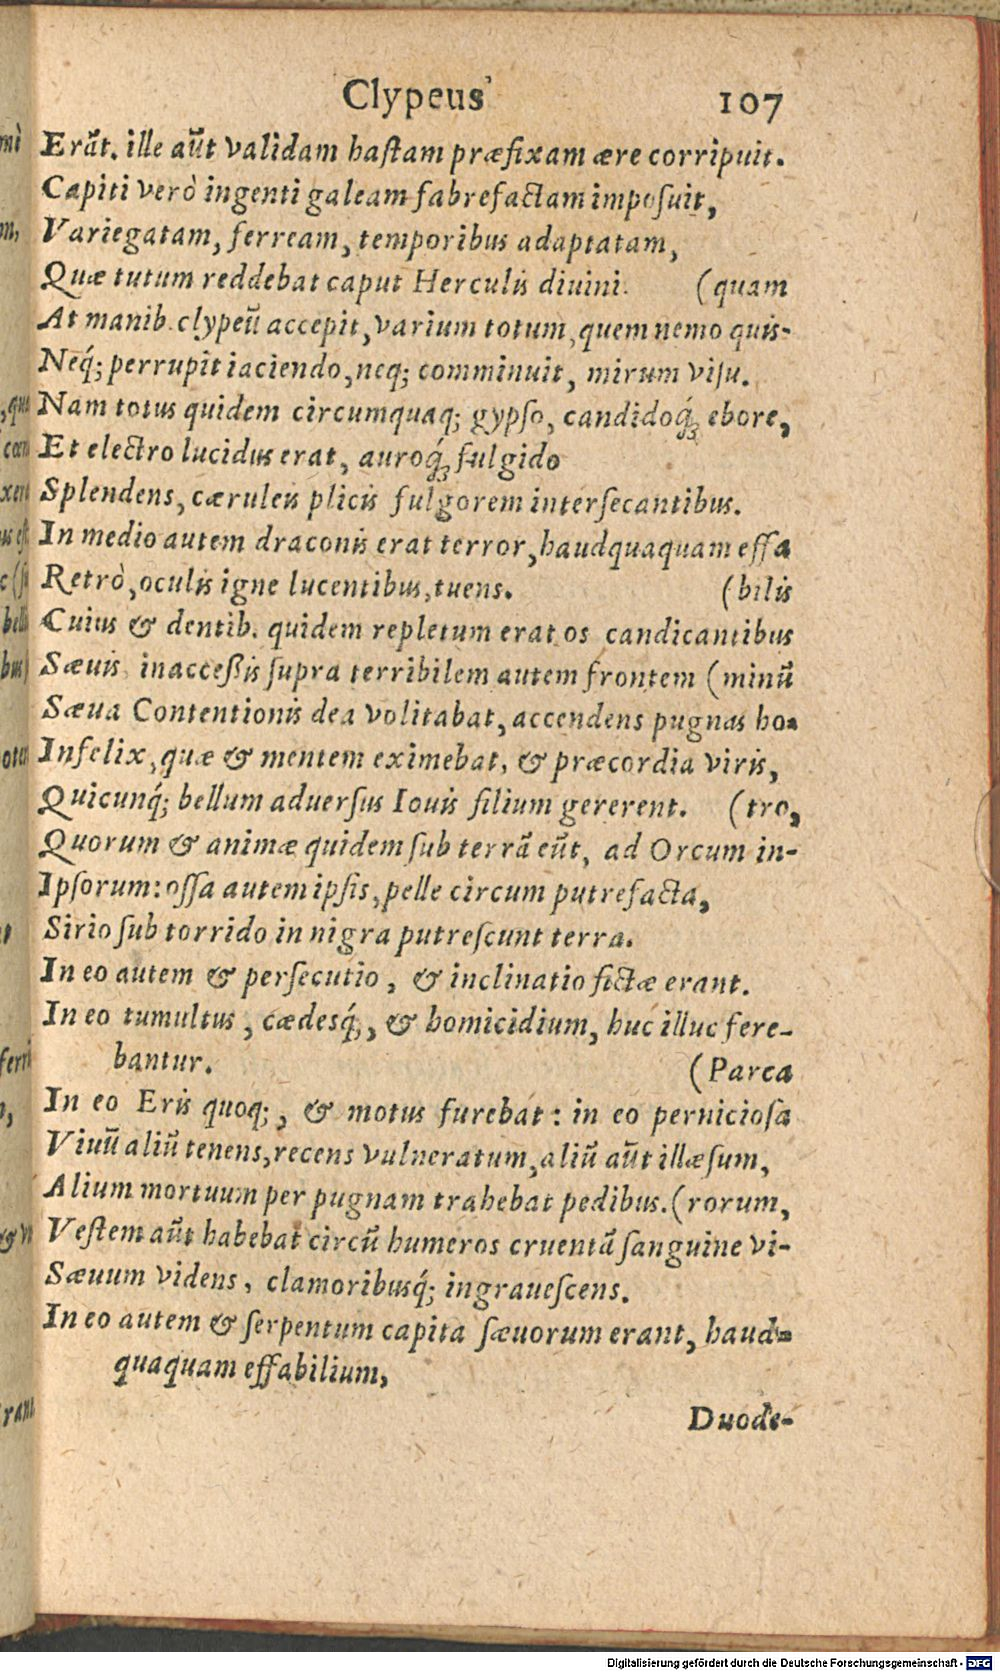 Clypeus 107
Erãt. ille aũt validam haſtam præfixam ære corripuit.
Capiti verò ingenti galeam fabrefactam impoſuit,
Variegatam, ferream, temporibus adaptatam,
Quæ tutum reddebat caput Herculis diuini. (quam
At manib. clypeũ accepit, varium totum, quem nemo quis-
Neq́; perrupit iaciendo, neq; comminuit, mirum viſu.
Nam totus quidem circumquaq; gypſo, candidoq́; ebore,
Et electro lucidus erat, auroq́; fulgido
Splendens, cæruleis plicis fulgorem interſecantibus.
In medio autem draconis erat terror, haudquaquam effa
Retrò, oculis igne lucentibus, tuens. (bilis
Cuius & dentib. quidem repletum erat os candicantibus
Sæuis inacceßis ſupra terribilem autem frontem (minũ
Sæua Contentionis dea volitabat, accendens pugnas ho-
Infelix, quæ & mentem eximebat, & præcordia viris,
Quicunq́; bellum aduerſus Iouis filium gererent. (tro,
Quorum & animæ quidem ſub terrã eũt, ad Orcum in-
Ipſorum: oſſa autem ipſis, pelle circum putrefacta,
Sirio ſub torrido in nigra putreſcunt terra.
In eo autem & perſecutio, & inclinatio fictæ erant.
In eo tumultus, cædesq́;, & homicidium, huc illuc fere-
bantur. (Parca
In eo Eris quoq;, & motus furebat: in eo pernicioſa
Viuũ aliũ tenens, recens vulneratum, aliũ aũt illæſum,
Alium mortuum per pugnam trahebat pedibus. (rorum,
Veſtem aũt habebat circũ humeros cruentã ſanguine vi-
Sæuum videns, clamoribusq́; ingraueſcens.
In eo autem & ſerpentum capita ſæuorum erant, haud-
quaquam effabilium,
Duode-
Digitalisierung gefördert durch die Deutsche Forschungsgemeinschaft - DFG